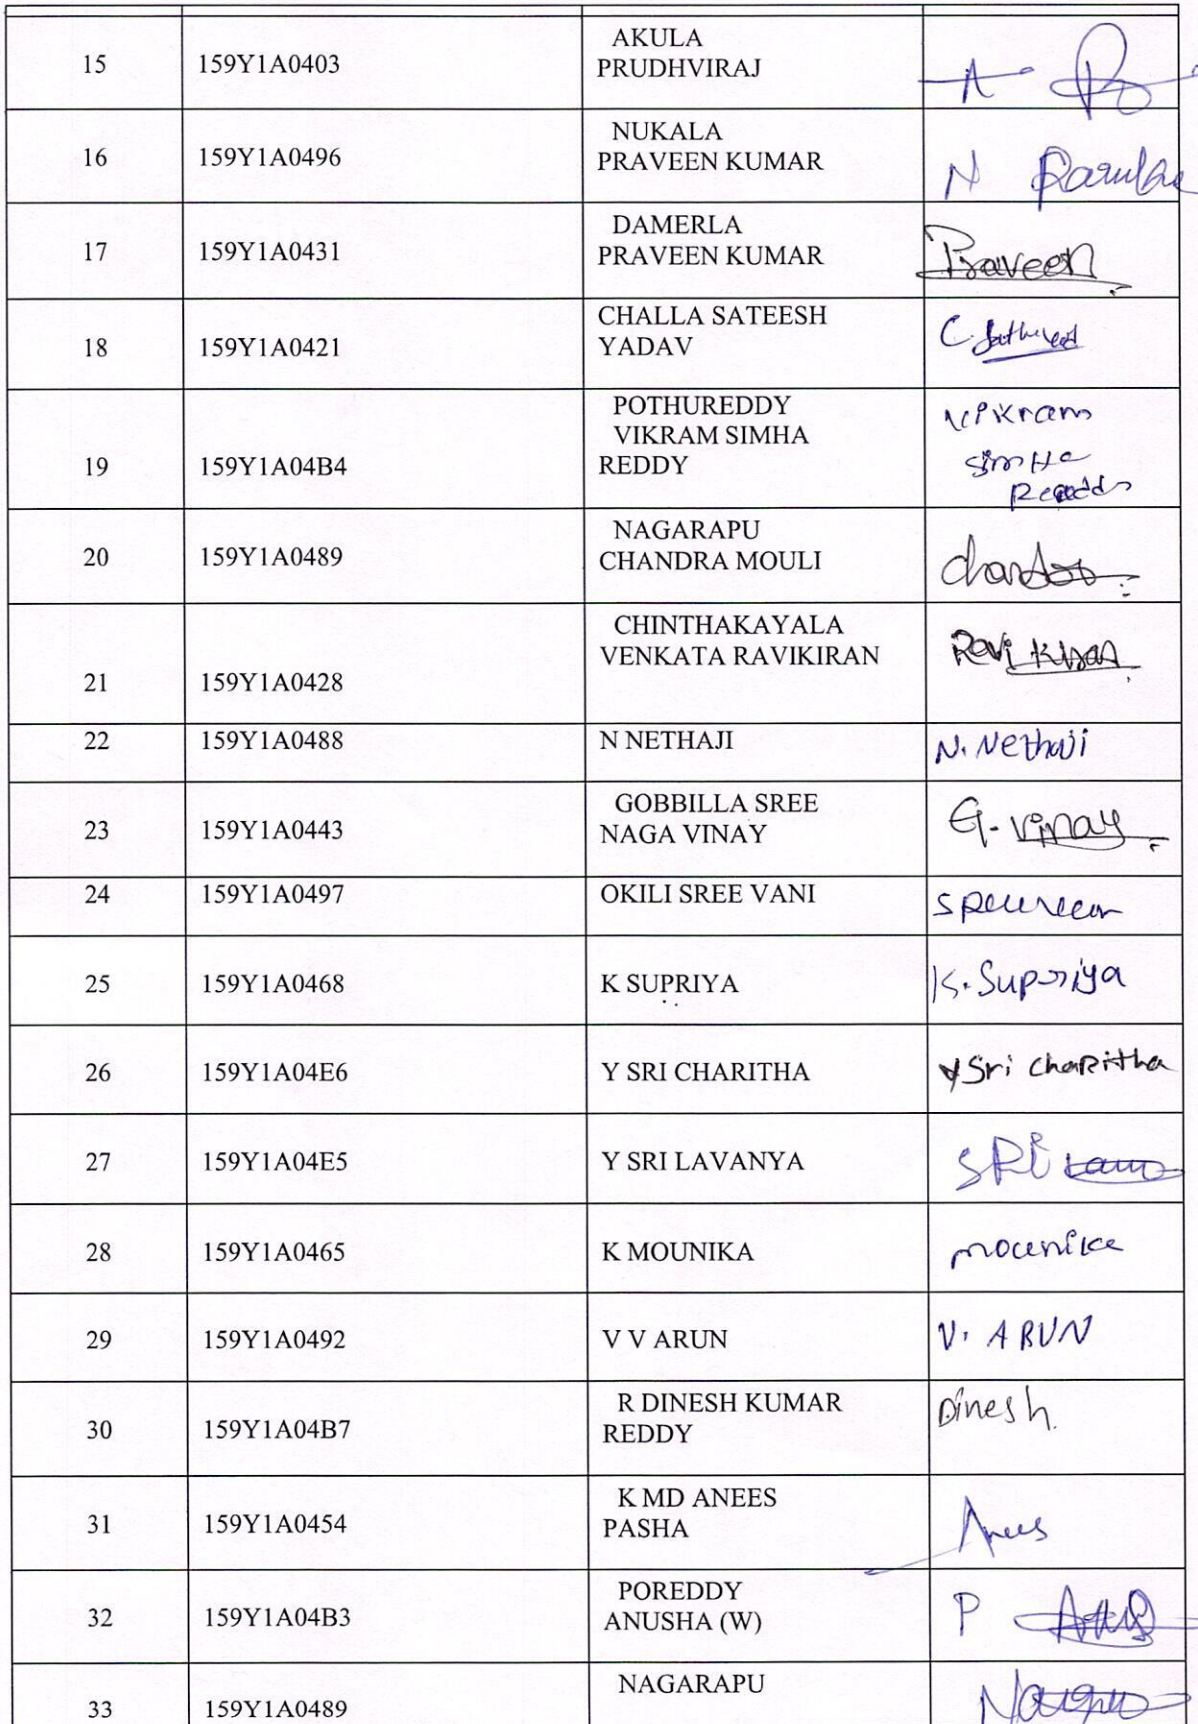 15 159Y1A0403 AKULA
PRUDHVIRAJ
16 159Y1A0496 NUKALA
PRAVEEN KUMAR N
17 159Y1A0431 DAMERLA
PRAVEEN KUMAR Praveen
18 159Y1A0421 CHALLA SATEESH
YADAV C.
19 159Y1A04B4 POTHUREDDY
VIKRAM SIMHA
REDDY Vikram
Simha
20 159Y1A0489 NAGARAPU
CHANDRA MOULI
21 159Y1A0428 CHINTHAKAYALA
VENKATA RAVIKIRAN Ravi Kiran
22 159Y1A0488 N NETHAJI N. Nethaji
23 159Y1A0443 GOBBILLA SREE
NAGA VINAY G. Vinay
24 159Y1A0497 OKILI SREE VANI
25 159Y1A0468 K SUPRIYA K. Supriya
26 159Y1A04E6 Y SRI CHARITHA Y Sri Charitha
27 159Y1A04E5 Y SRI LAVANYA SRi
28 159Y1A0465 K MOUNIKA mounika
29 159Y1A0492 V V ARUN V. ARUN
30 159Y1A04B7 R DINESH KUMAR
REDDY Dinesh.
31 159Y1A0454 K MD ANEES
PASHA Anees
32 159Y1A04B3 POREDDY
ANUSHA (W) P
33 159Y1A0489 NAGARAPU